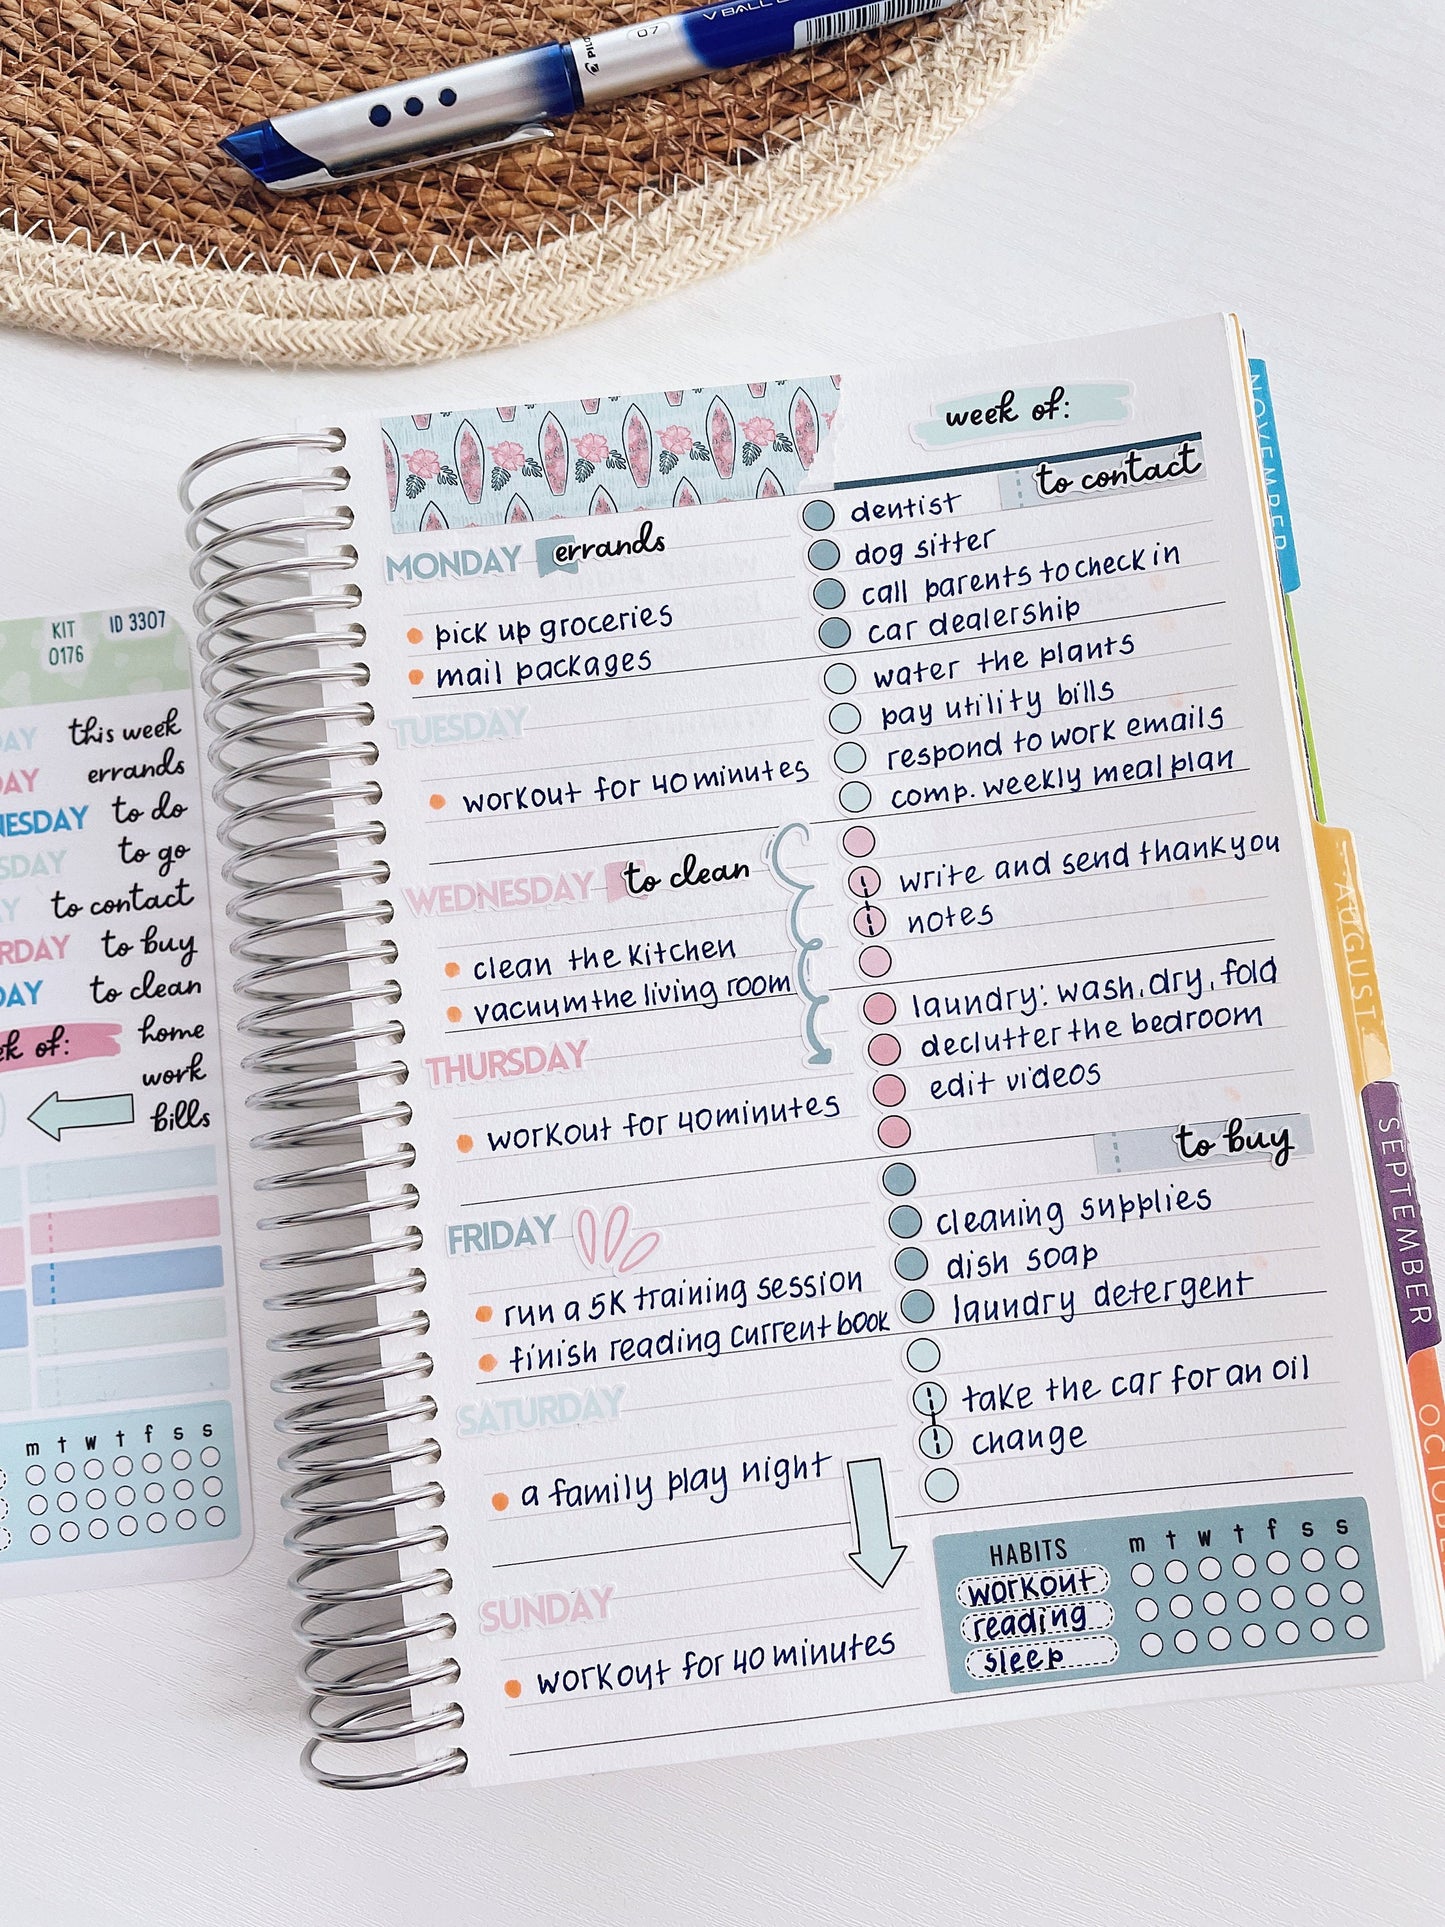 V BALL
PILOT
07
KIT
0176
ID 3307
this week
errands
to do
to go
to contact
to buy
to clean
home
work
bills
DAY
NESDAY
SDAY
RDAY
DAY
ek of:
m t w t f s s
week of:
MONDAY errands
pick up groceries
mail packages
TUESDAY
workout for 40 minutes
WEDNESDAY to clean
clean the kitchen
vacuum the living room
THURSDAY
workout for 40 minutes
FRIDAY
run a 5K training session
finish reading current book
SATURDAY
a family play night
SUNDAY
workout for 40 minutes
to contact
dentist
dog sitter
call parents to check in
car dealership
water the plants
pay utility bills
respond to work emails
comp. weekly meal plan
write and send thank you
notes
laundry: wash, dry, fold
declutter the bedroom
edit videos
to buy
cleaning supplies
dish soap
laundry detergent
take the car for an oil
change
HABITS m t w t f s s
workout
reading
sleep
NOVEMBER
AUGUST
SEPTEMBER
OCTOBE